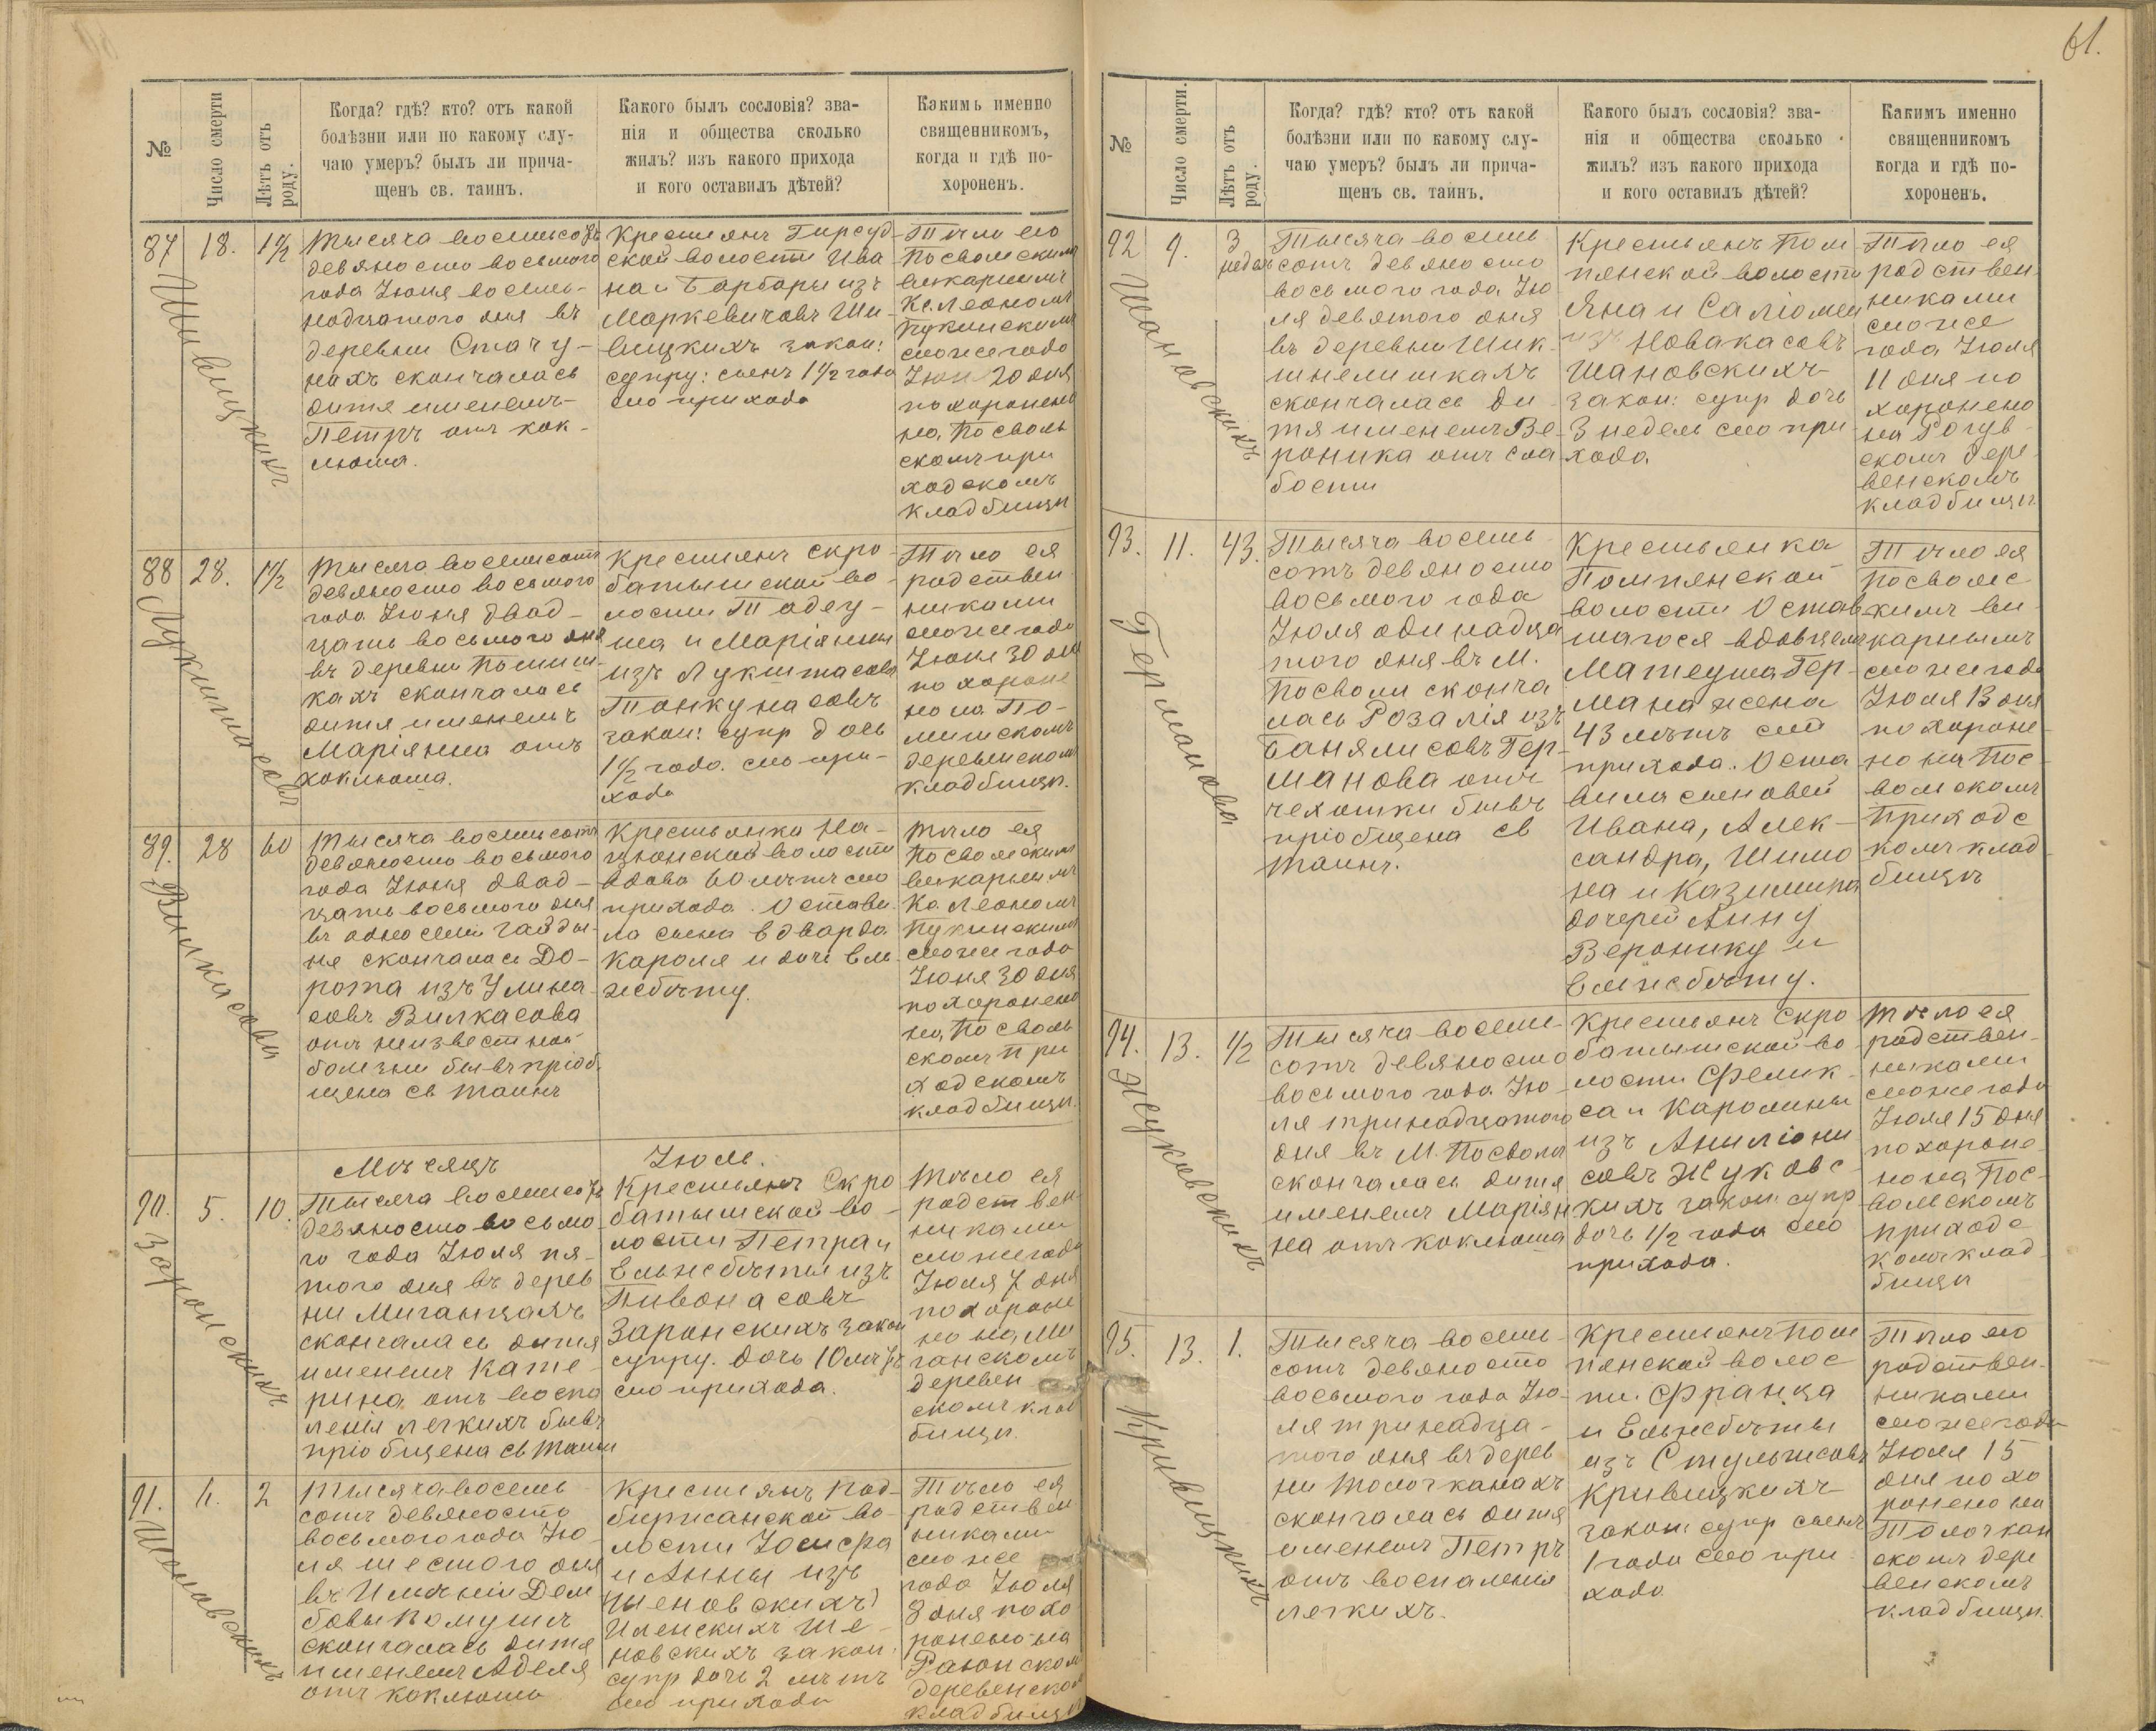 61.
№
Число смерти
Лѣтъ отъ роду.
Когда? гдѣ? кто? отъ какой
болѣзни или по какому слу-
чаю умеръ? былъ ли прича-
щенъ св. таинъ.
Какого былъ сословія? зва-
нія и общества сколько
жилъ? изъ какого прихода
и кого оставилъ дѣтей?
Какимъ именно
священникомъ,
когда и гдѣ по-
хороненъ.
87
Шивицкихъ
18.
1 1/2
Тысяча восемьсотъ
девяносто восьмого
года Іюня восемь-
надцатого дня въ
деревни Стачу-
нахъ скончалась
дитя именемъ
Петръ отъ кок-
люша.
Крестьянъ Гирсуд-
ской волости Ива
на и Барбары изъ
Маркевичовъ Ши-
вицкихъ закон:
супру: сынъ 1 1/2 года
сего прихода
Тѣло его
Посвольскимъ
викарнымъ
Кс. Леономъ
Пукинскимъ
сего же года
Іюн 20 дня
похоронено
на Посволь
скомъ при
ходскомъ
кладбищѣ
88
28.
1 1/2
Тысяча восемьсотъ
девяносто восьмого
года Іюня двад-
цать восьмого дня
въ деревни
кахъ скончалась
дитя именемъ
Маріянна отъ
коклюша.
Крестьянъ Скро-
батышской во-
лости Тадеу-
ша и Маріянны
изъ Лукштасовъ
закон: супр дочь
1 1/2 года. сего при-
хода
Тѣло ея
родствен
никами
сего же года
Іюня 30 дня
похороне
но на По-
деревенскомъ
кладбищѣ.
89.
Вилкасова
28
60
Тысяча восемьсотъ
девяносто восьмого
года Іюня двад-
цать восьмого дня
въ односели Гайды-
ня скончалась До-
рота изъ Улина-
совъ Вилкасова
отъ неизвестной
болезни бывъ пріоб-
щена св таинъ
Крестьянка На-
ціонской волости
вдова 60 лѣтъ сего
прихода. Остави-
ла сына Эдварда
Кароля и дочь Ели-
жбѣту.
Тѣло ея
Посвольскимъ
викарнымъ
Кс Леономъ
Пукинскимъ
сего же года
Іюня 30 дня
похоронено
на Посволь
скомъ при
ходскомъ
кладбищѣ.
Мѣсяцъ Іюль.
90.
Заронскихъ
5.
10.
Тысяча восемьсотъ
девяносто восьмо-
го года Іюля пя-
того дня въ дерев
ни Миганцахъ
скончалась дитя
именемъ Кате-
рина отъ воспа
ленія легкихъ бывъ
пріобщена св таинъ
Крестьянъ Скро
батышской во-
лости Петра и
Ельжбѣты изъ
Пивонасовъ
Заронскихъ закон
супру. дочь 10 лѣтъ
сего прихода.
Тѣло ея
родствен
никами
сего же года
Іюля 7 дня
похороне
но на Ми
ганскомъ
деревен
скомъ клад
бищѣ.
91.
Шеновскихъ
2
Тысяча восемь
сотъ девяносто
восьмого года Ію
ля шестого дня
въ Имѣніи Дем
бовы
скончалась дитя
именемъ Аделя
отъ коклюша
Крестьянъ Под-
биржанской во-
лости Іосифа
и Анны изъ
новскихъ закон:
супр дочь 2 лѣтъ
сего прихода
Тѣло ея
родствен
никами
сего же
года Іюля
8 дня похо
ронено на
деревенскомъ
кладбищѣ
№
Число смерти.
Лѣтъ отъ роду.
Когда? гдѣ? кто? отъ какой
болѣзни или по какому слу-
чаю умеръ? былъ ли прича-
щенъ св. таинъ.
Какого былъ сословія? зва-
нія и общества сколько
жилъ? изъ какого прихода
и кого оставилъ дѣтей?
Какимъ именно
священникомъ
когда и гдѣ по-
хороненъ.
92
Шановскихъ
9.
3
недел
Тысяча восемь
сотъ девяносто
восьмого года Ію
ля девятого дня
въ деревни Шик-
шнелишкахъ
скончалась ди
тя именемъ Ве-
роника отъ сла
бости
Крестьянъ Пом
пянской волости
Яна и Саліомеи
изъ Новакасовъ
Шановскихъ
закон: супр дочь
3 недель сего при
хода
Тѣло ея
родствен
никами
сего же
года Іюля
11 дня по
хоронено
на Рогув-
скомъ дере
венскомъ
кладбищѣ
93.
Германова
11.
43.
Тысяча восемь
сотъ девяносто
восьмого года
Іюля одинадца
того дня въ М.
Посволи сконча
лась Розалія изъ
Банялисовъ Гер-
манова отъ
чехотки бывъ
пріобщена св
таинъ.
Крестьянка
Помпянской
волости Остав-
шагося вдовцемъ
Матеуша Гер-
мана жена
43 лѣтъ сего
прихода. Оста
вила сыновей
Ивана, Алек-
сандра, Шимо
на и Казимира
дочерей Анну
Веронику и
Елижбѣту.
Тѣло ея
Посвольс
кимъ ви
карнымъ
сего же года
Іюля 13 дня
похороне-
но на Пос-
вольскомъ
приходс
комъ клад
бищѣ
94.
Жуковскихъ
13.
1/2
Тысяча восемь-
сотъ девяносто
восьмого года Ію-
ля тринадцатого
дня въ М. Посволи
скончалась дитя
именемъ Маріян
на отъ коклюша
Крестьянъ Скро
батышской во
лости Фелик-
са и Каролины
изъ Анилiони
совъ Жуковс-
кихъ закон: супр
дочь 1/2 года сего
прихода.
Тѣло ея
родствен-
никами
сего же года
Іюля 15 дня
похороне-
но на Пос-
вольскомъ
приходс
комъ клад-
бищѣ
95.
Кривицкихъ
13.
1.
Тысяча восемь-
сотъ девяносто
восьмого года Ію-
ля тринадца-
того дня въ дерев
ни Толочканахъ
скончалась дитя
именемъ Петръ
отъ воспаленія
легкихъ.
Крестьянъ Пом
пянской волос
ти. Франца
и Ельжбѣты
изъ Стульгисовъ
Кривицкихъ
закон: супр сынъ
1 года сего при
хода
Тѣло его
родствен-
никами
сего же года
Іюля 15
дня похо
ронено на
Толочкан
скомъ дере
венскомъ
кладбищѣ.